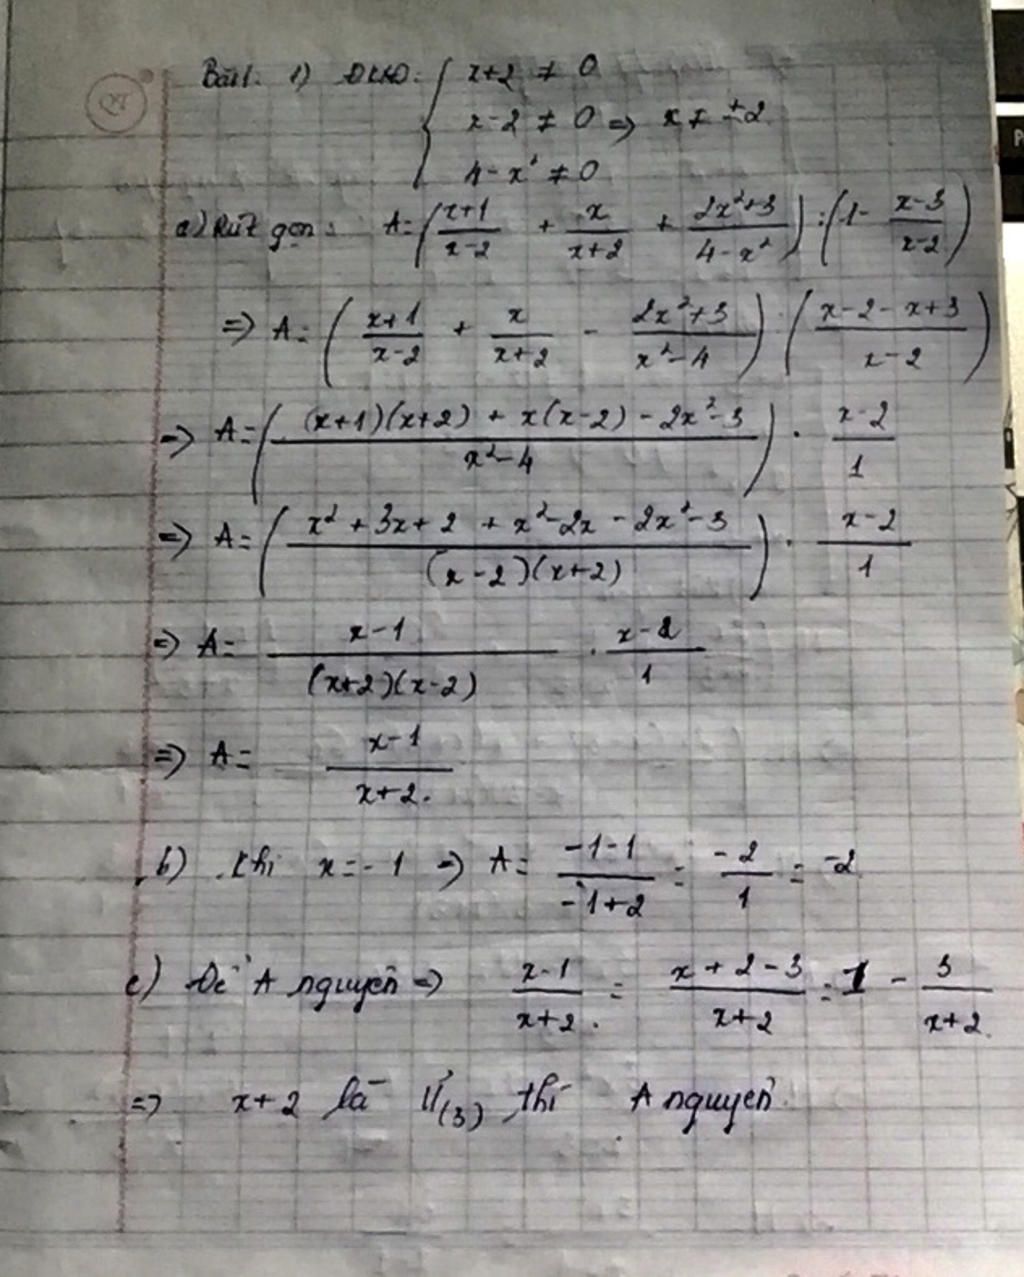 Bài 1: 1) ĐKXĐ: { x+2 ≠ 0
x-2 ≠ 0 => x ≠ ±2.
4-x² ≠ 0
a) Rút gọn: A = ( (x+1)/(x-2) + x/(x+2) + (2x²+3)/(4-x²) ) : ( 1 - (x-3)/(x-2) )
=> A = ( (x+1)/(x-2) + x/(x+2) - (2x²+3)/(x²-4) ) : ( (x-2-x+3)/(x-2) )
=> A = ( ((x+1)(x+2) + x(x-2) - 2x²-3)/(x²-4) ) . (x-2)/1
=> A = ( (x²+3x+2 + x²-2x - 2x²-3)/((x-2)(x+2)) ) . (x-2)/1
=> A = (x-1)/((x+2)(x-2)) . (x-2)/1
=> A = (x-1)/(x+2).
b) Khi x = -1 => A = (-1-1)/(-1+2) = -2/1 = -2
c) Để A nguyên => (x-1)/(x+2) = (x+2-3)/(x+2) = 1 - 3/(x+2)
=> x+2 là Ư(3) thì A nguyên.